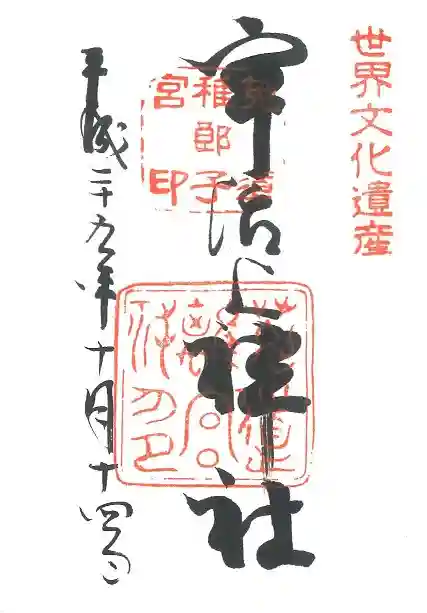 世界文化遺産
宇治上神社
菟道
稚郎子
宮印
平成二十九年十月十四日